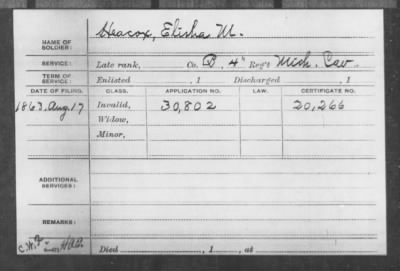 NAME OF SOLDIER: Heacox, Elisha M.
SERVICE: Late rank, Co. B, 4" Reg't Mich. Cav.
TERM OF SERVICE: Enlisted , 1 Discharged , 1
DATE OF FILING. CLASS. APPLICATION NO. LAW. CERTIFICATE NO.
1863, Aug. 17 Invalid, 30,802 20,266
Widow,
Minor,
ADDITIONAL SERVICES:
REMARKS:
C.W.
Died , 1 , at